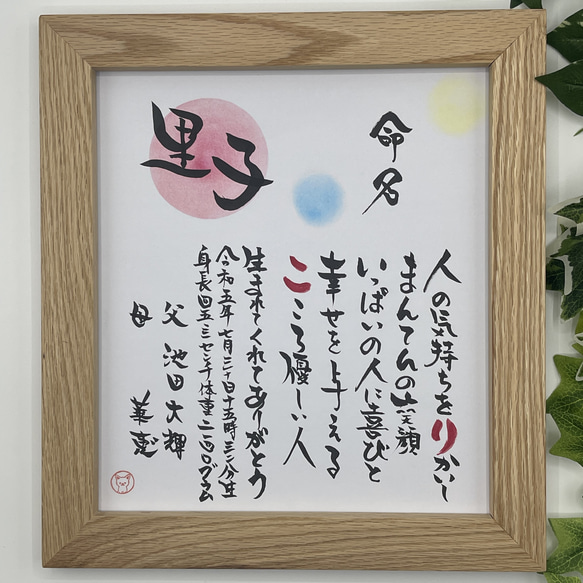 命名
里子
人の気持ちをりかいし
まんてんの笑顔
いっぱいの人に喜びと
幸せを与える
こころ優しい人
生まれてくれてありがとう
令和五年七月三十日十五時三十分生
身長四五.三センチ体重二一〇〇グラム
父 池田大輝
母